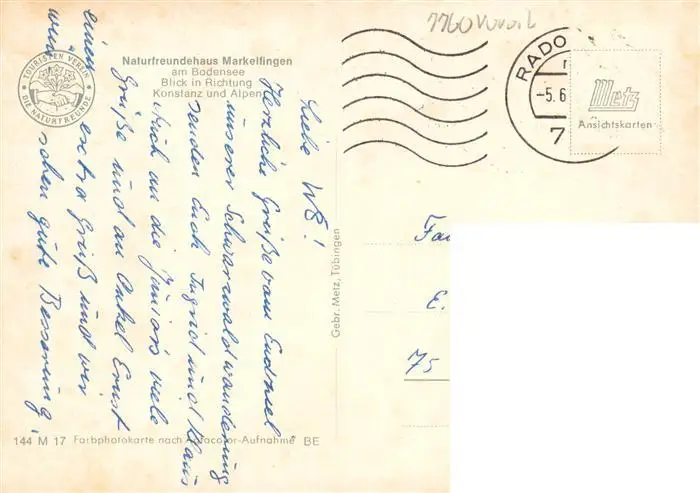 7760 Vorarlb
Naturfreundehaus Markelfingen
am Bodensee
Blick in Richtung
Konstanz und Alpen
TOURISTEN VEREIN
DIE NATURFREUNDE
RADO
-5.6
7
Metz
Ansichtskarten
Liebe WE!
Herzliche Grüße vom Endziel
unserer Schwarzwaldwanderung
senden Euch Ingrid und Klaus
Auch an die Juniors viele
Grüße und an Onkel Ernst
einen extra Gruß und wir
wünschen gute Besserung!
Gebr. Metz, Tübingen
Fa
E.
75
144 M 17 Farbphotokarte nach Agfacolor-Aufnahme BE